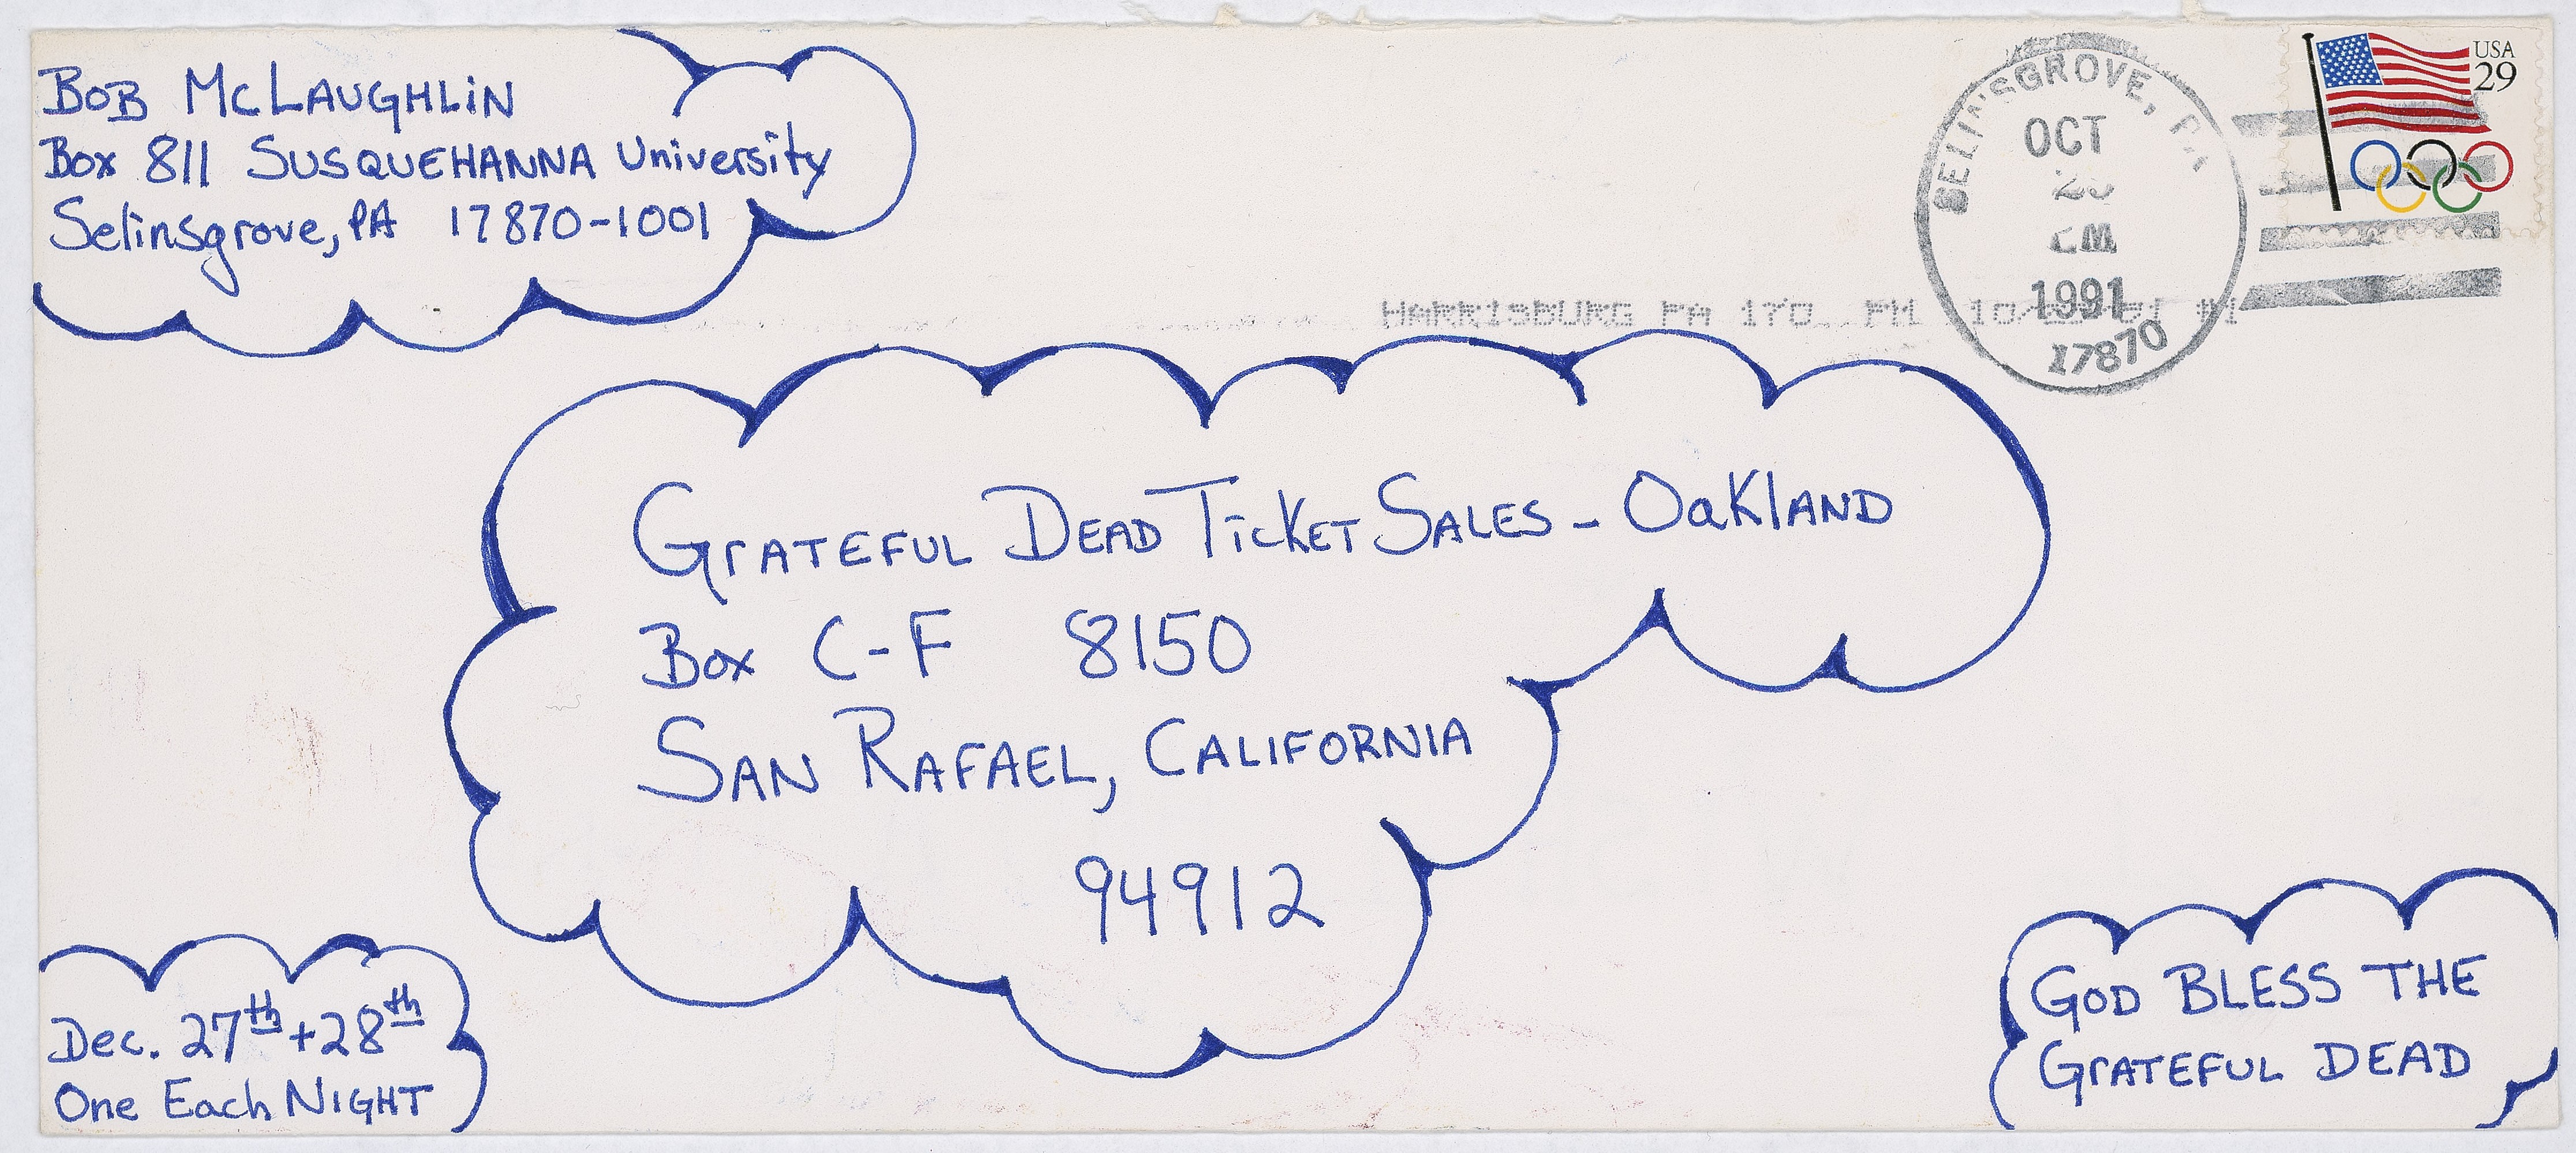 BOB McLAUGHLiN
Box 811 SUSQUEHANNA University
Selinsgrove, PA 17870-1001
SELINSGROVE, PA
OCT
1991
17870
USA
29
HARRISBURG PA 170 PM 10/ 91 #1
GrATEFUL DEAD TicKET SALES - OaKlAND
Box C-F 8150
SAN RAFAEL, CALIFORNIA
94912
Dec. 27th + 28th
One Each NIGHT
GOD BLESS THE
GrATEFUL DEAD